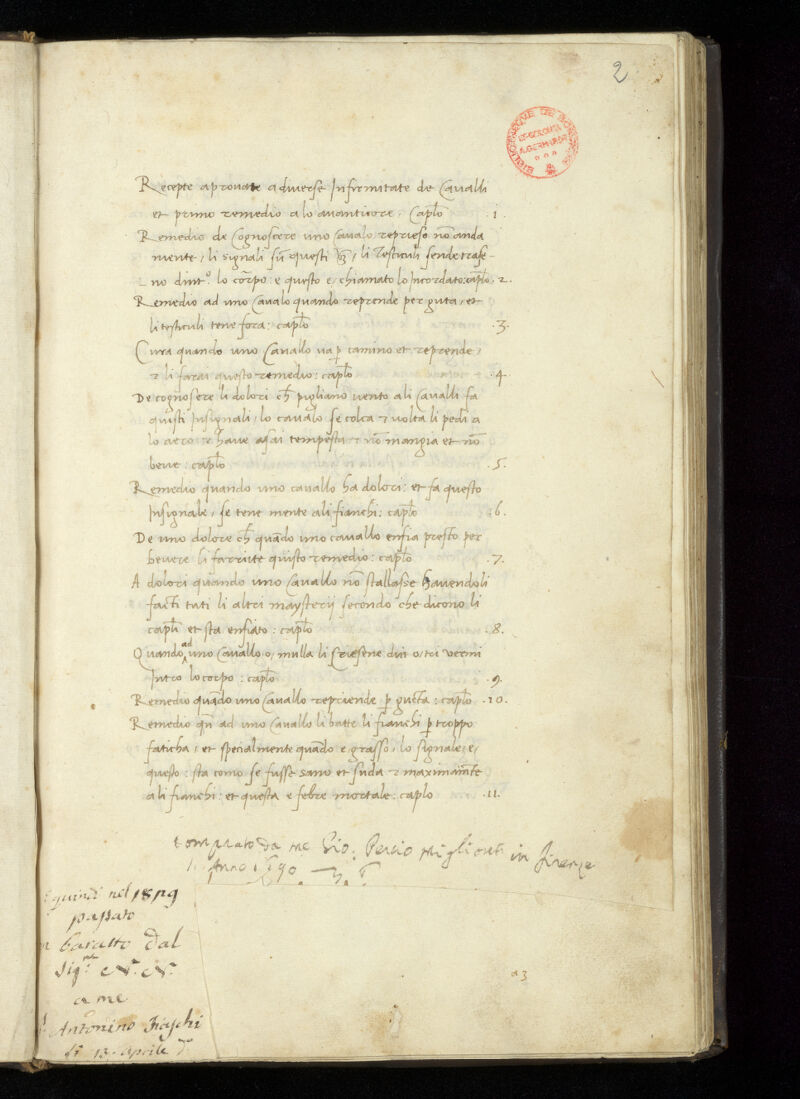 2
Recepte aprovate a diverse Infirmitate de Cavalli
et primo remedio a lo avantivore. Cap̃lo .1.
Remedio de Cognoscere uno Cavalo represo nõ anda
mente / li signali sũ questi / li Testiculi sende trase-
no dint.o lo corpo: e questo e / chiamato lo Incordato: cap̃lo .2.
Remedio ad uno Cavalo quando reprende per guta / et
li testiculi tene fora: cap̃lo .3.
Cura quando uno Cavallo va ꝑ camino et reprende /
⁊ li farai questo remedio: cap̃lo .4.
De cognosere li dolori ch̃ pigliano vento a li Cavalli fa
quisti Insignali / lo cavalo se colca ⁊ volta li pedi a
lo aero: ⁊ have asai tempesta ⁊ nõ mangia et nõ
beve: cap̃lo .5.
Remedio quando uno cavallo ha dolori: et fa questo
Insignale / se tene mente a li fianchi: cap̃lo .6.
De uno dolore ch̃ quãdo uno cavallo enfia presto per
bevere li farrite quisto remedio: cap̃lo .7.
A dolori quando uno Cavallo nõ stallasse havendoli
facti tuti li altri maysterij secondo che dicono li
cap̃li et sta enfiato: cap̃lo .8.
Quando ad uno Cavallo o / mulla li Criesene vermi
Intro lo corpo: cap̃lo .9.
Remedio quãdo uno Cavallo repriende ꝑ gucta: cap̃lo .10.
Remedio qñ ad uno Cavallo li batte li fianchi ꝑ troppo
faticha / et specialmente quãdo e grasso / lo signale e /
questo: sta como se fusse sano et suda ⁊ maximamẽte
a li fianchi: et questa e febre mortale: cap̃lo .11.
Comprato da me Gio: Persio Migliorati in firenze
Anno 1590.
quindi nel 1819
passato
baratto dal
Sig.re N. N.
a me
Antonino Fieschi
li 13. aprile
a3